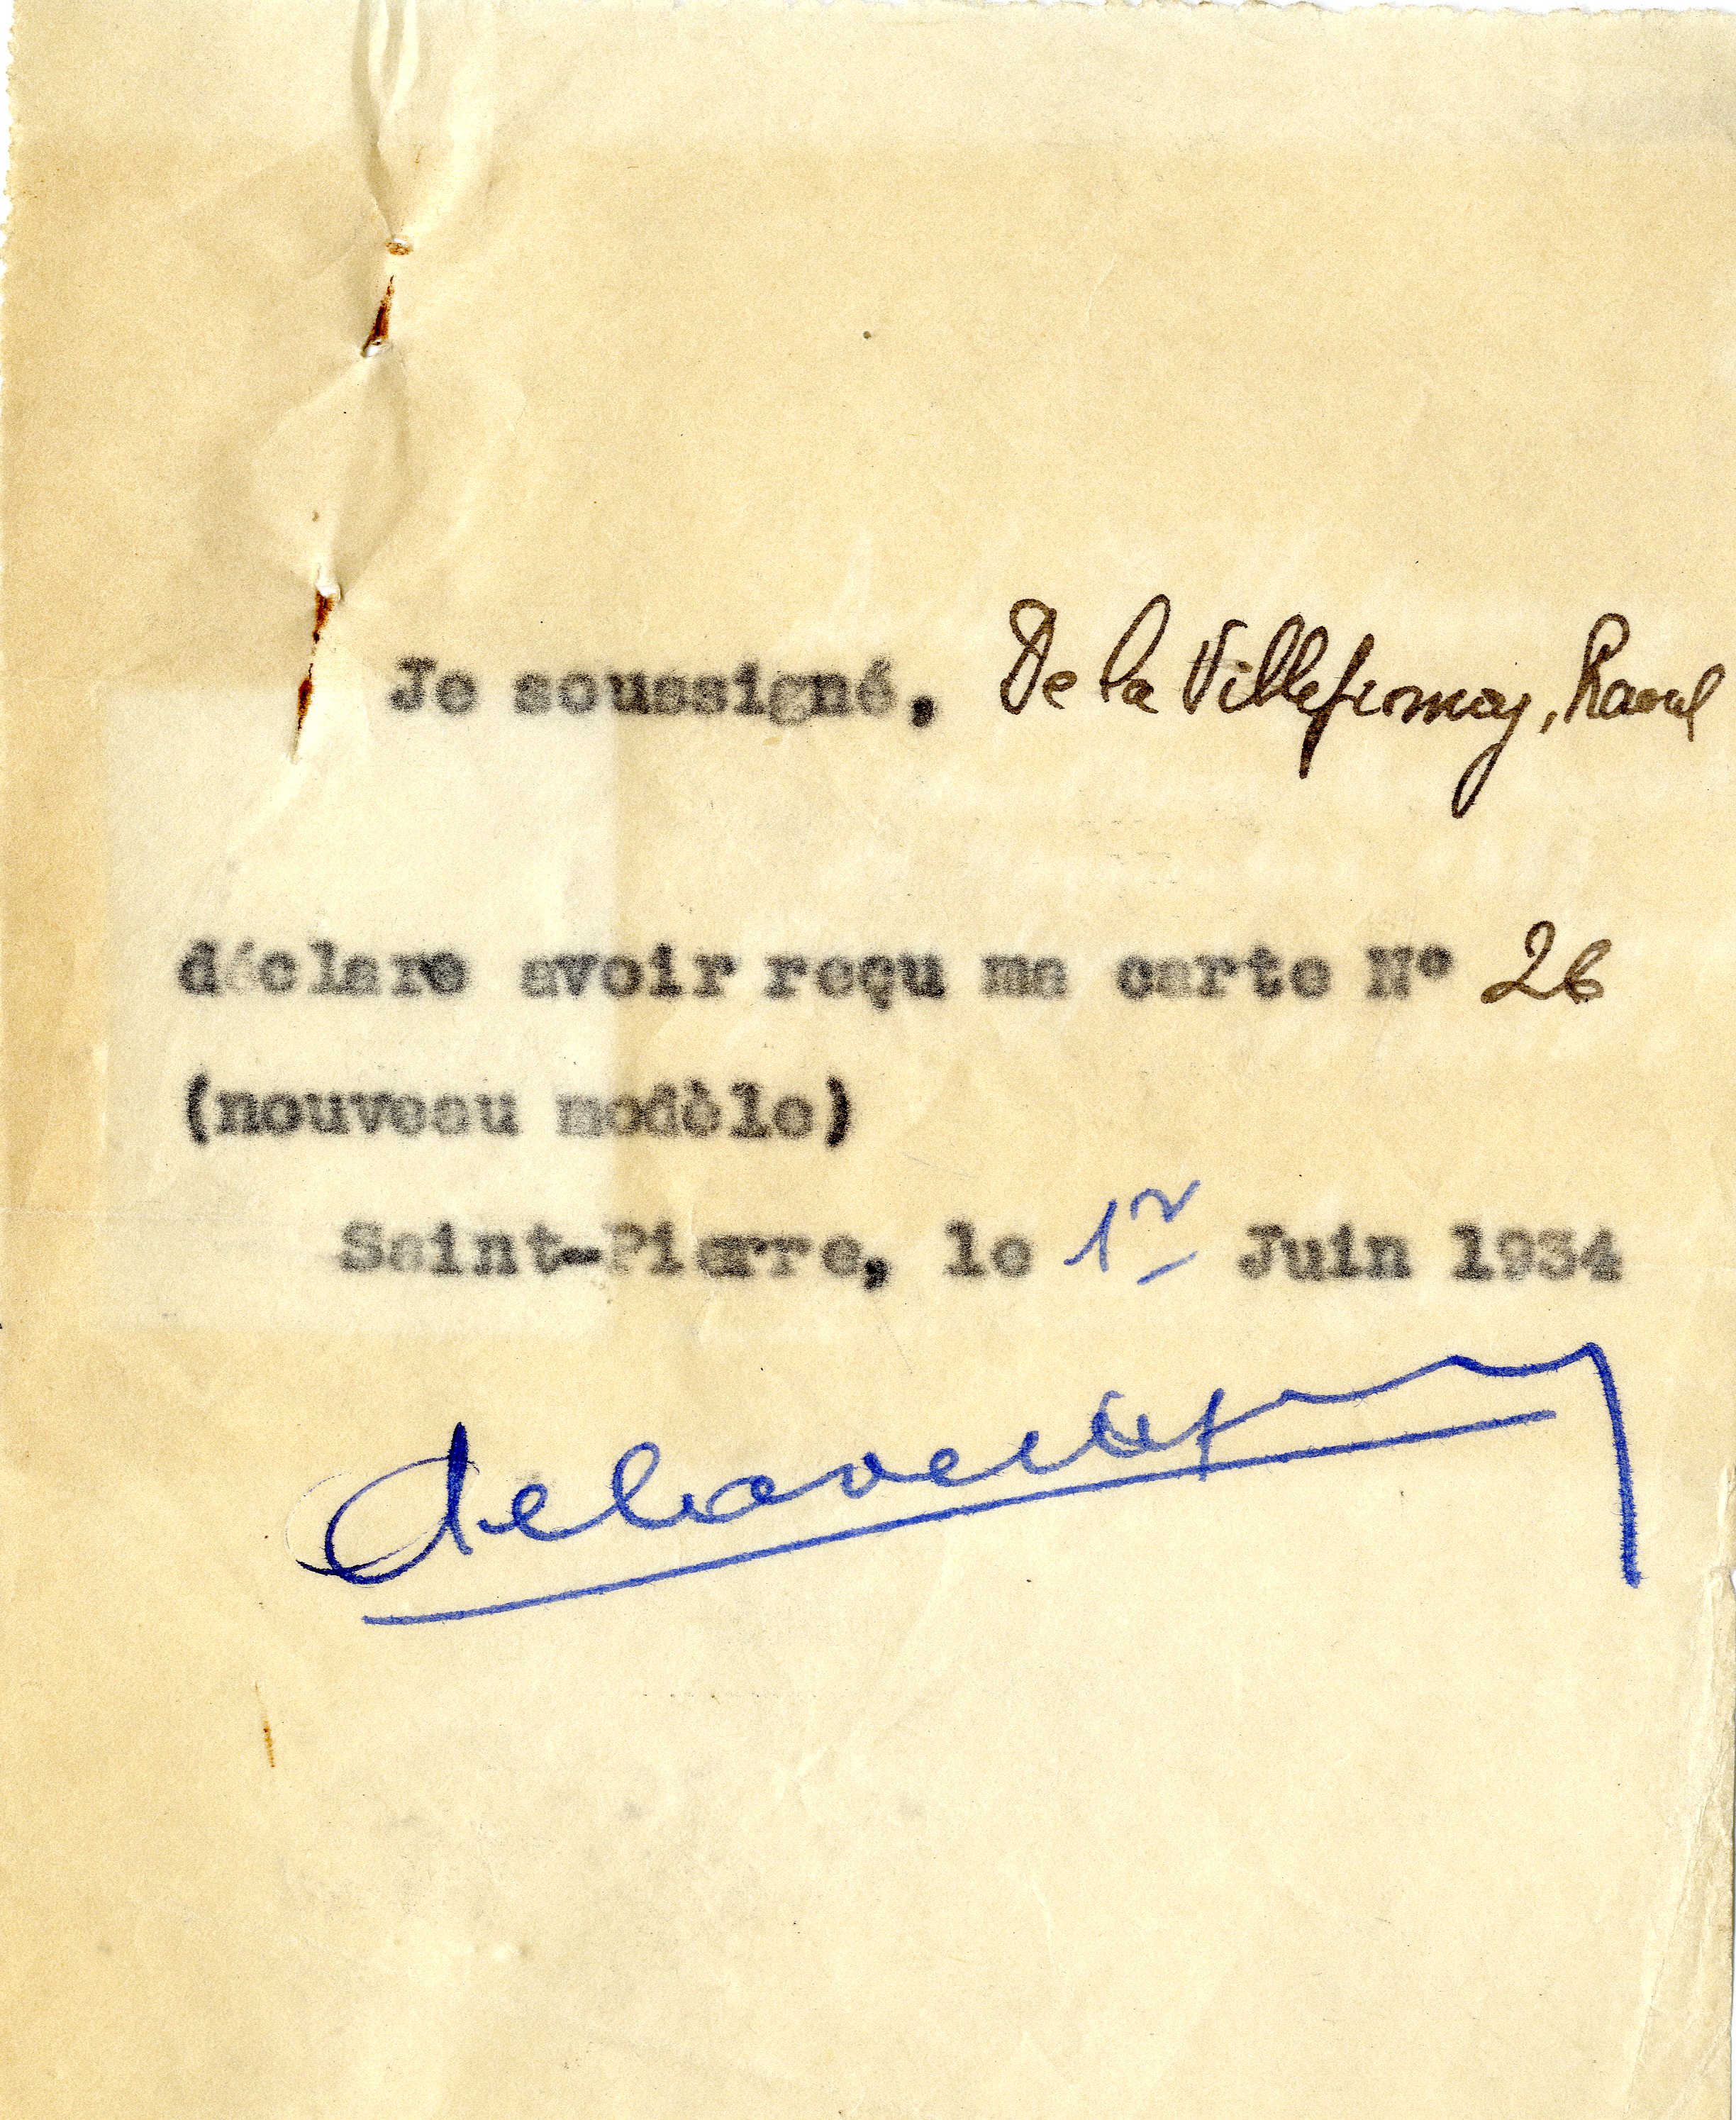 Je soussigné, De la Villefromoy, Raoul
déclare avoir reçu ma carte N° 26
(nouveau modèle)
Saint-Pierre, le 1er Juin 1934